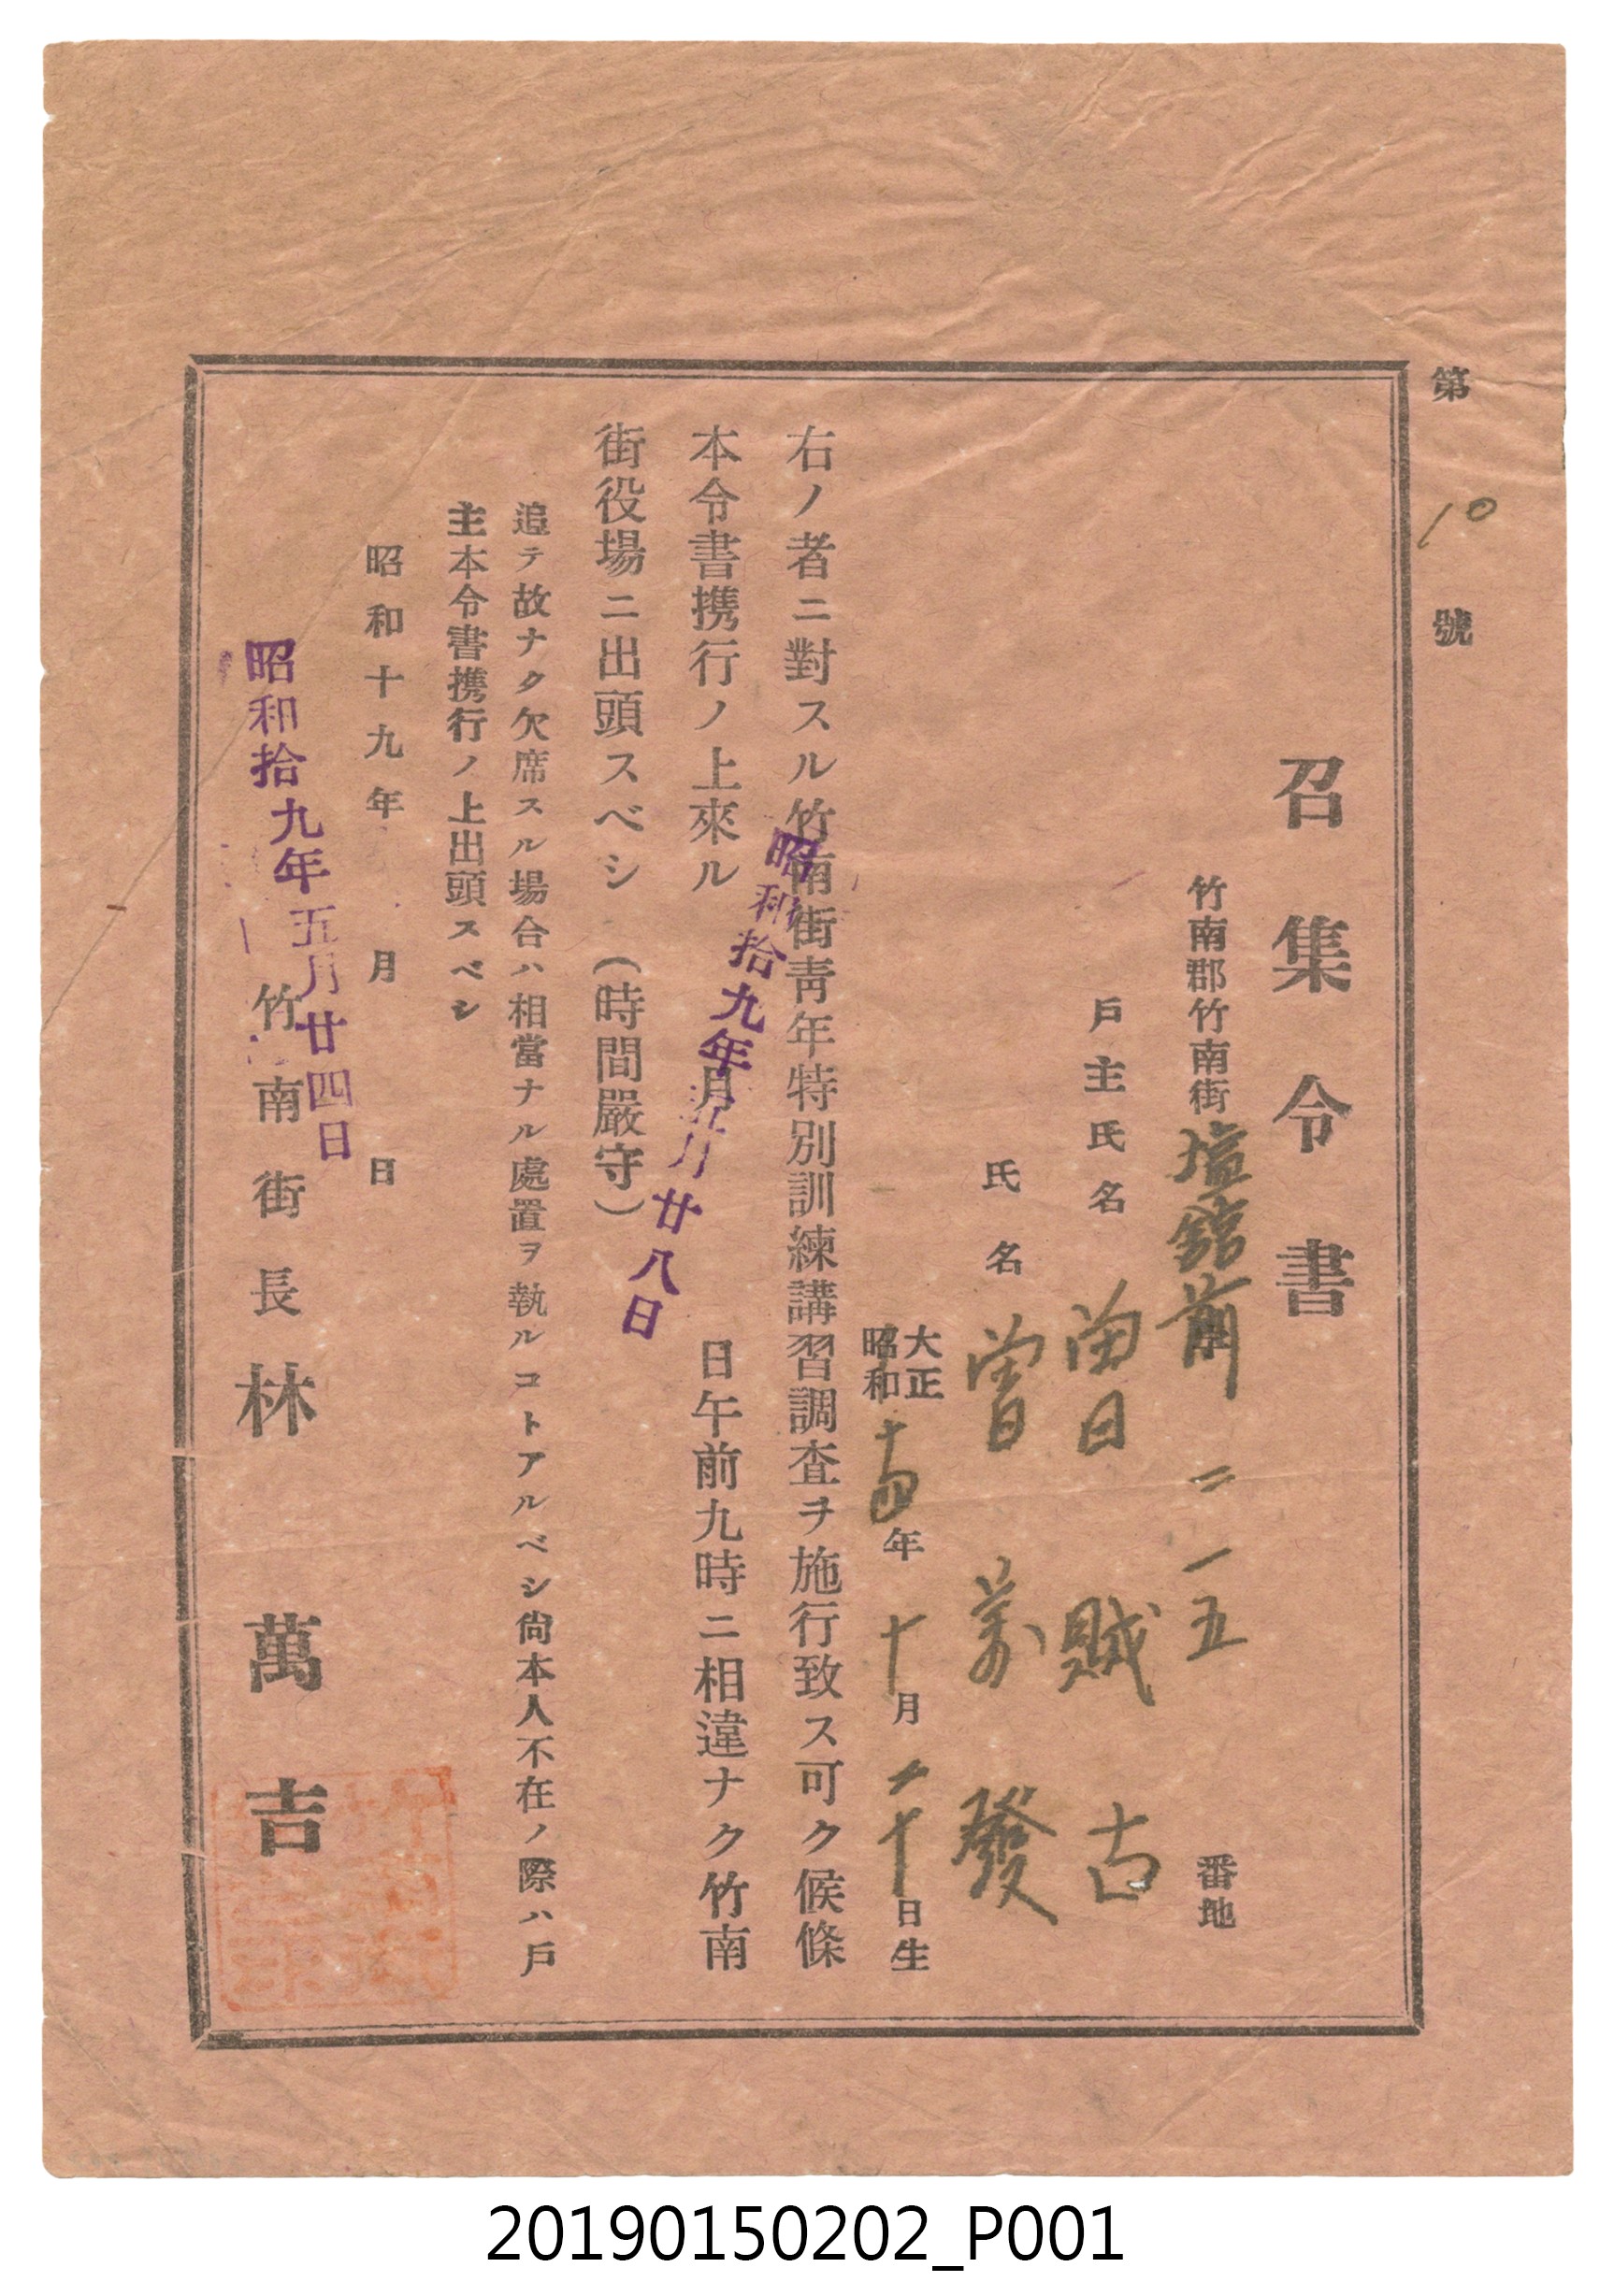 第 10 號
召集令書
竹南郡竹南街 塩館前 二一五 番地
戶主氏名 曾 賊 古
氏名 曾 萬 發
大正
昭和 十四年 十月 二十日生
右ノ者ニ對スル竹南街靑年特別訓練講習調査ヲ施行致ス可ク候條
本令書携行ノ上來ル 昭和拾九年五月廿八日 月 日午前九時ニ相違ナク竹南
街役場ニ出頭スベシ (時間嚴守)
追テ故ナク欠席スル場合ハ相當ナル處置ヲ執ルコトアルベシ尙本人不在ノ際ハ戶
主本令書携行ノ上出頭スベシ
昭和十九年 月 日
昭和拾九年五月廿四日
竹南街長 林 萬 吉
20190150202_P001